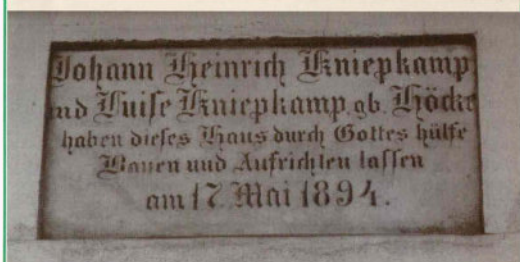 Johann Heinrich Kniepkamp
und Luise Kniepkamp gb. Höcke
haben dieses Haus durch Gottes hülfe
Bauen und Aufrichten lassen
am 17. Mai 1894.